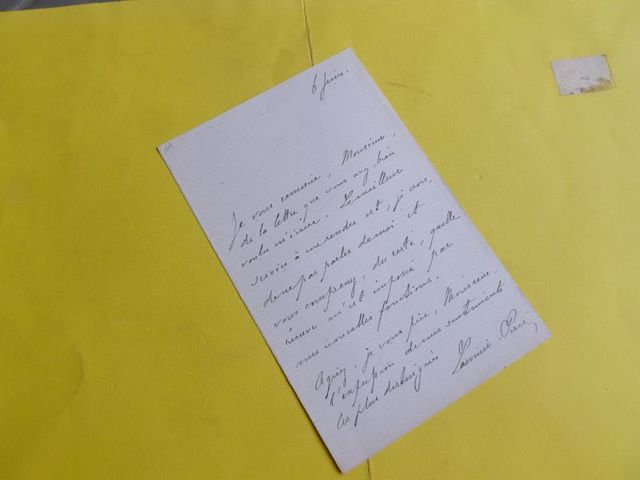 6 juin.
Je vous remercie, Monsieur,
de la lettre que vous avez bien
voulu m'écrire. Le meilleur
service à me rendre est, je crois,
de ne pas parler de moi et
vous comprenez, du reste, quelle
réserve m'est imposée par
mes nouvelles fonctions.
Agréez, je vous prie, Monsieur,
l'expression de mes sentiments
les plus distingués
Casimir Perier